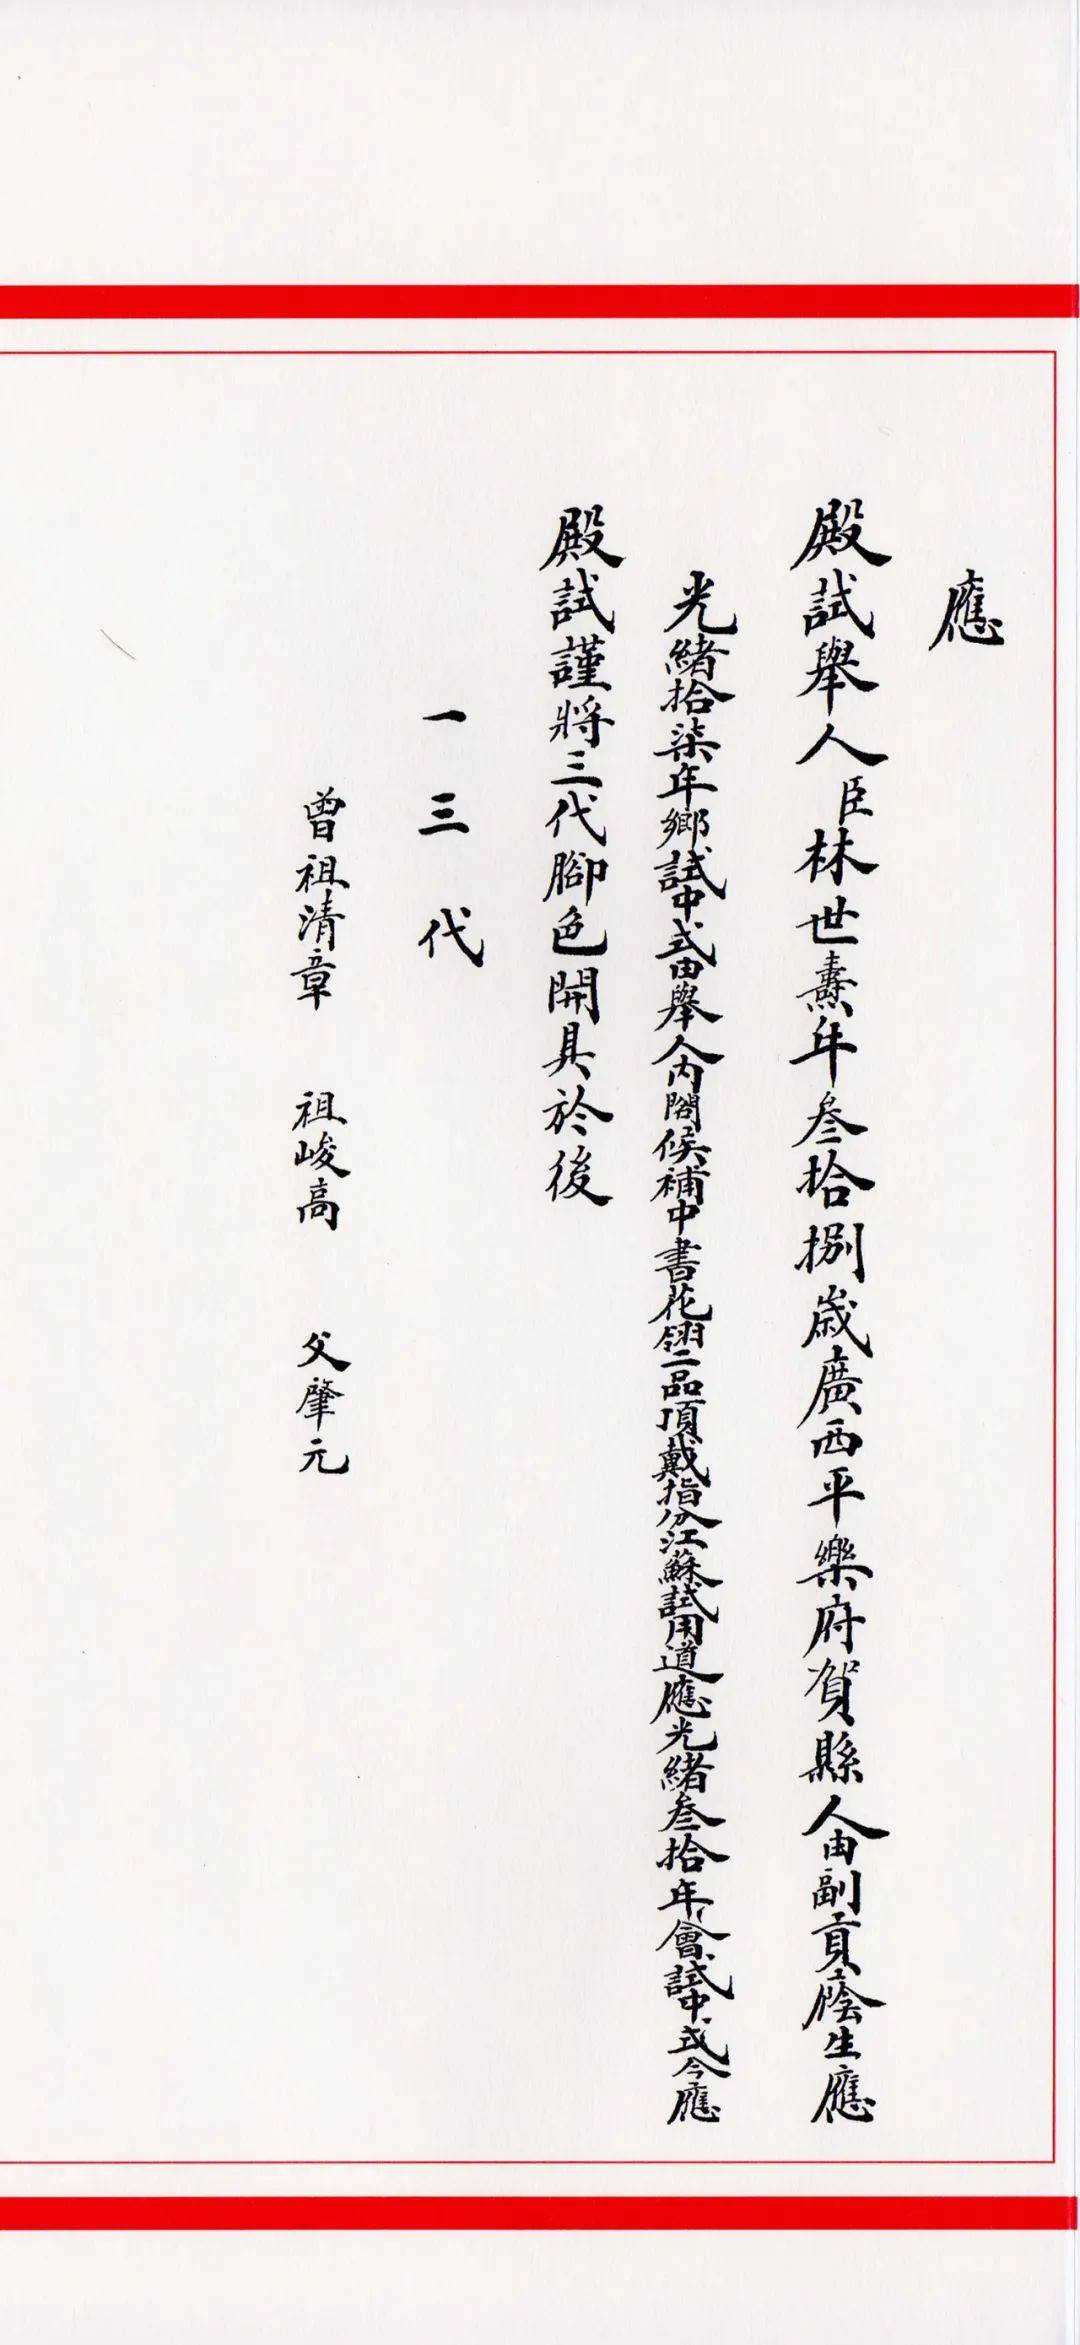 應
殿試舉人臣林世燾年叁拾捌歲廣西平樂府賀縣人由副貢廕生應
光緒拾柒年鄉試中式由舉人內閣候補中書花翎二品頂戴指分江蘇試用道應光緒叁拾年會試中式今應
殿試謹將三代腳色開具於後
一三代
曾祖清章 祖峻高 父肇元